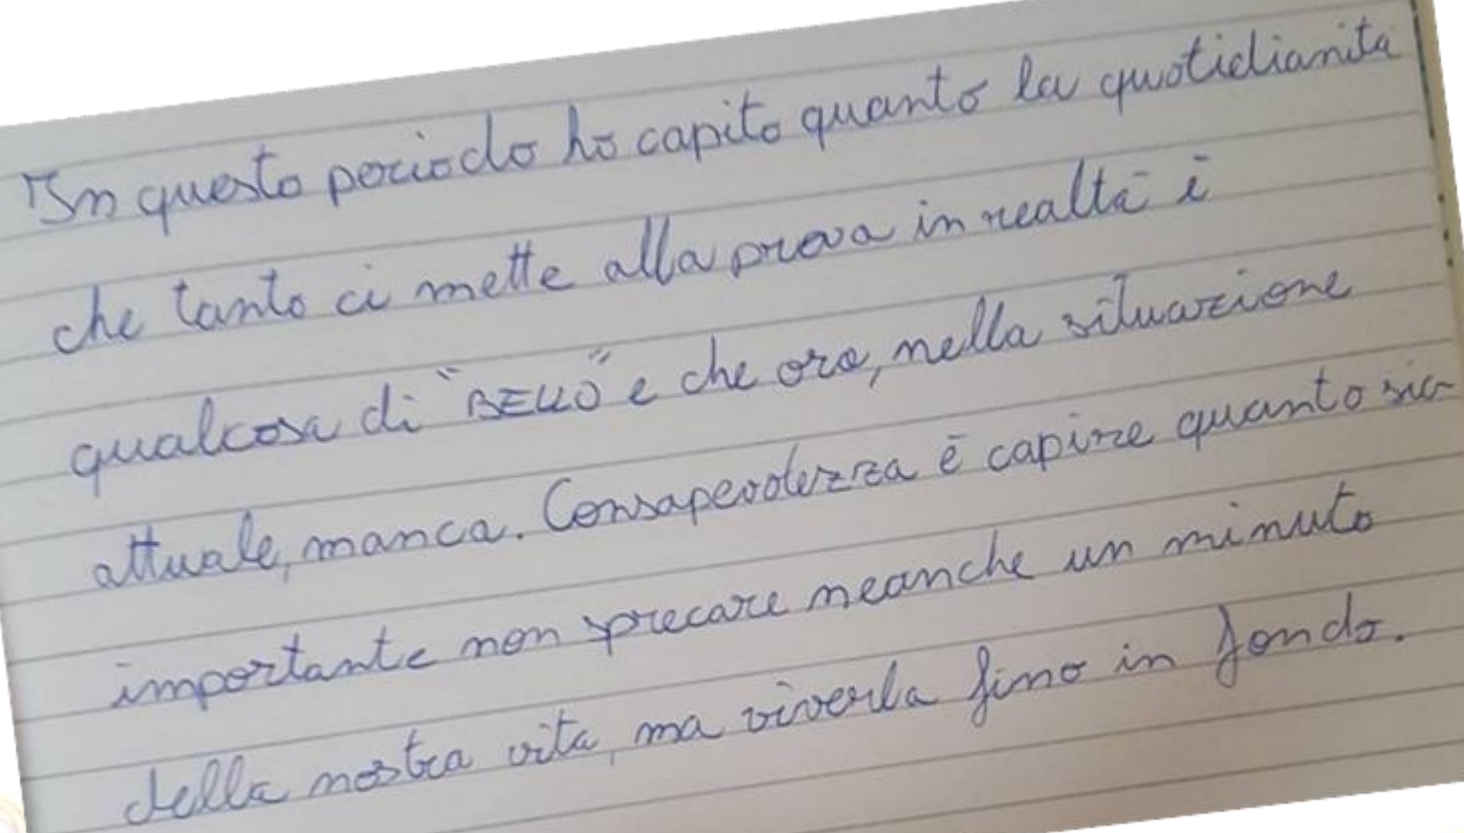 "In questo periodo ho capito quanto la quotidianità
che tanto ci mette alla prova in realtà è
qualcosa di "BELLO" e che ora, nella situazione
attuale, manca. Consapevolezza è capire quanto sia
importante non sprecare neanche un minuto
della nostra vita, ma viverla fino in fondo.